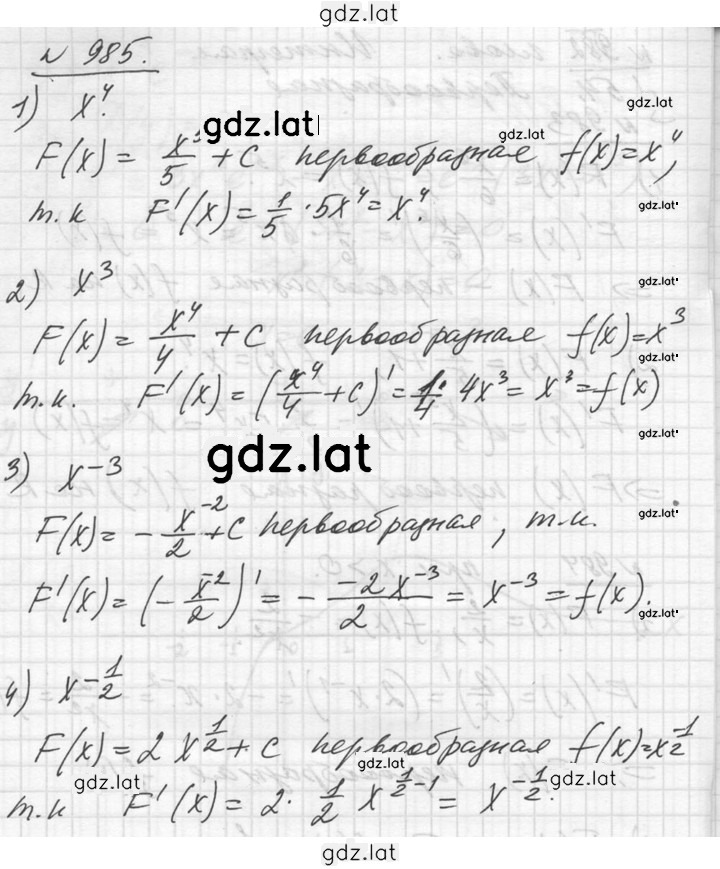 gdz.lat
№ 985.
1) x⁴.
gdz.lat
gdz.lat
gdz.lat
F(x) = x⁵/5 + C первообразная f(x)=x⁴,
т.к F'(x) = 1/5 · 5x⁴ = x⁴.
gdz.lat
2) x³
gdz.lat
F(x) = x⁴/4 + C первообразная f(x)=x³
gdz.lat
т.к. F'(x) = (x⁴/4 + C)' = 1/4 · 4x³ = x³ = f(x)
gdz.lat
gdz.lat
3) x⁻³
gdz.lat
F(x) = - x⁻²/2 + C первообразная, т.к.
F'(x) = (- x⁻²/2)' = - -2x⁻³/2 = x⁻³ = f(x).
gdz.lat
4) x^-1/2
F(x) = 2 x^1/2 + C первообразная f(x)=x^-1/2
gdz.lat
gdz.lat
gdz.lat
т.к F'(x) = 2 · 1/2 x^1/2-1 = x^-1/2.
gdz.lat